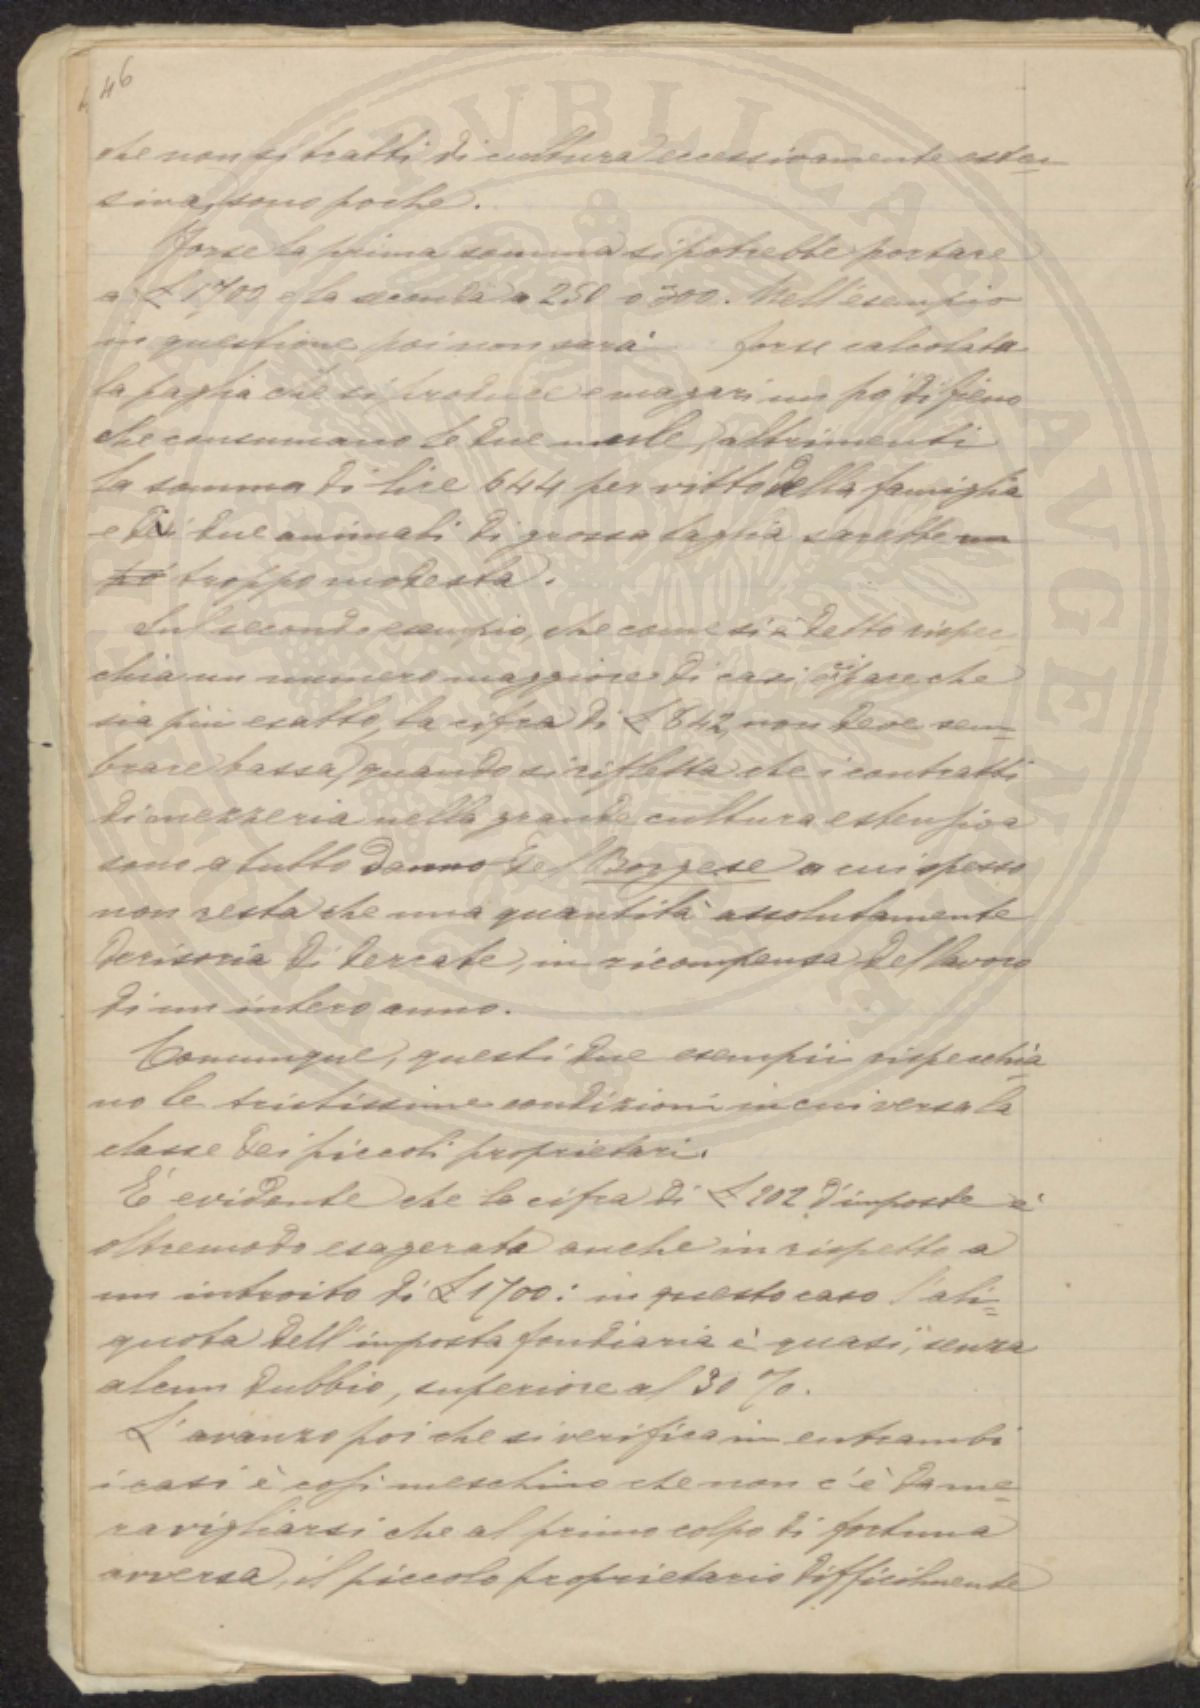 46
che non si tratti di cultura eccessivamente esten=
siva, sono poche.
Forse la prima somma si potrebbe portare
a £ 1700 e la seconda a 250 o 300. Nell'esempio
in questione poi non sarà forse calcolata
la paglia che si produce e magari un po' di fieno
che consumano le due mule, altrimenti
la somma di lire 644 per vitto della famiglia
e dei due animali di grossa taglia sarebbe un
po' troppo modesta.
Sul secondo esempio, che come si è detto rispec=
chia un numero maggiore di casi ci pare che
sia più esatto, la cifra di £ 642 non deve sem=
brare bassa, quando si rifletta che i contratti
di mezzeria nella grande cultura estensiva
sono a tutto danno del Borgese a cui spesso
non resta che una quantità assolutamente
derisoria di derrate, in ricompensa del lavoro
di un intero anno.
Comunque, questi due esempii rispecchia=
no le tristissime condizioni in cui versa la
classe dei piccoli proprietari.
E' evidente che la cifra di £ 202 d'imposte è
oltremodo esagerata anche in rispetto a
un introito di £ 1700: in questo caso l'ali=
quota dell'imposta fondiaria è quasi, senza
alcun dubbio, superiore al 30 %.
L'avanzo poi che si verifica in entrambi
i casi è così meschino che non c'è da me=
ravigliarsi che al primo colpo di fortuna
avversa, il piccolo proprietario difficilmente
PVBLICAE AVGENDAE